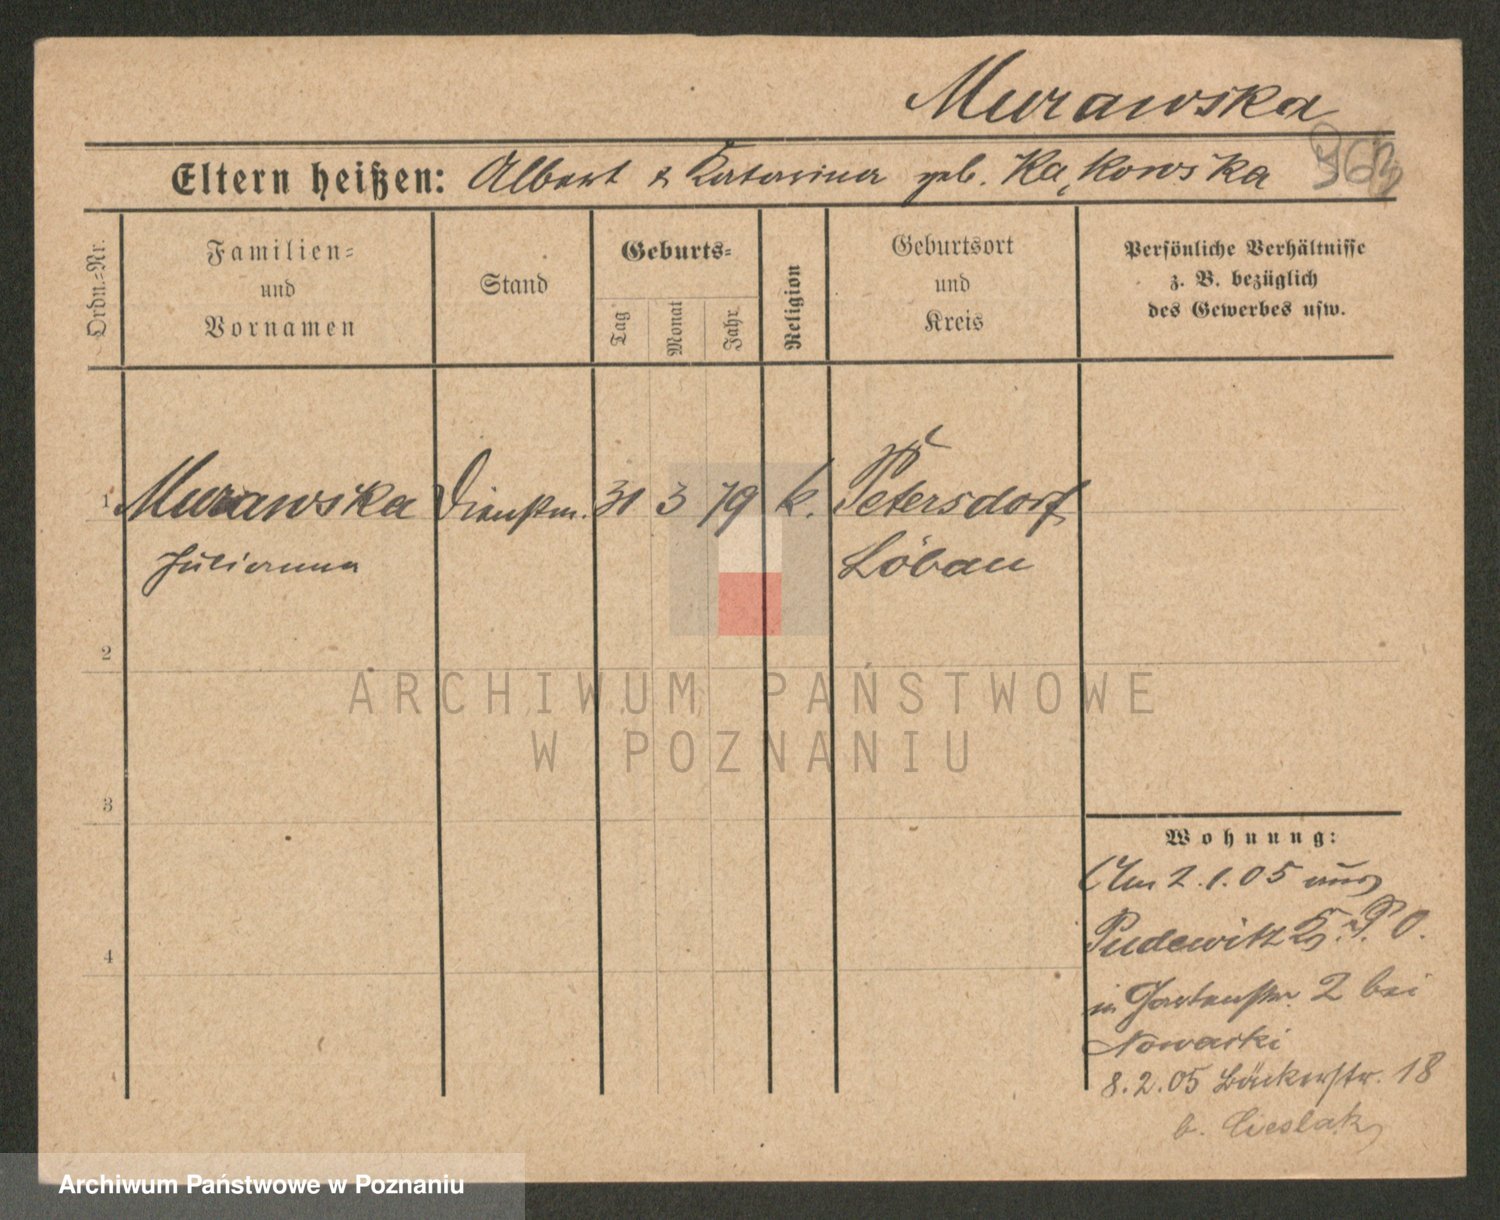 Murawska
Eltern heißen: Albert & Katarina geb. Kąkowska
Ordn.-Nr.
Familien- und Vornamen
Stand
Geburts-
Tag
Monat
Jahr
Religion
Geburtsort und Kreis
Persönliche Verhältnisse
z. B. bezüglich
des Gewerbes usw.
1 Murawska Dienstm. 31 3 79 k. Petersdorf
Julianna Löbau
2
ARCHIWUM PAŃSTWOWE
W POZNANIU
3
Wohnung:
Am 2.1.05 aus
Pudewitz P. O.
4
in Gartenstr. 2 bei
Nowacki
8.2.05 Bäckerstr. 18
b. Cieslak
Archiwum Państwowe w Poznaniu